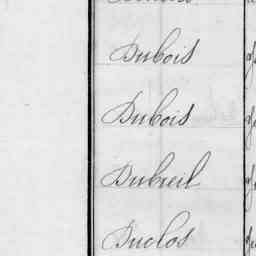 Dubois
Dubois
Dubreil
Duclos